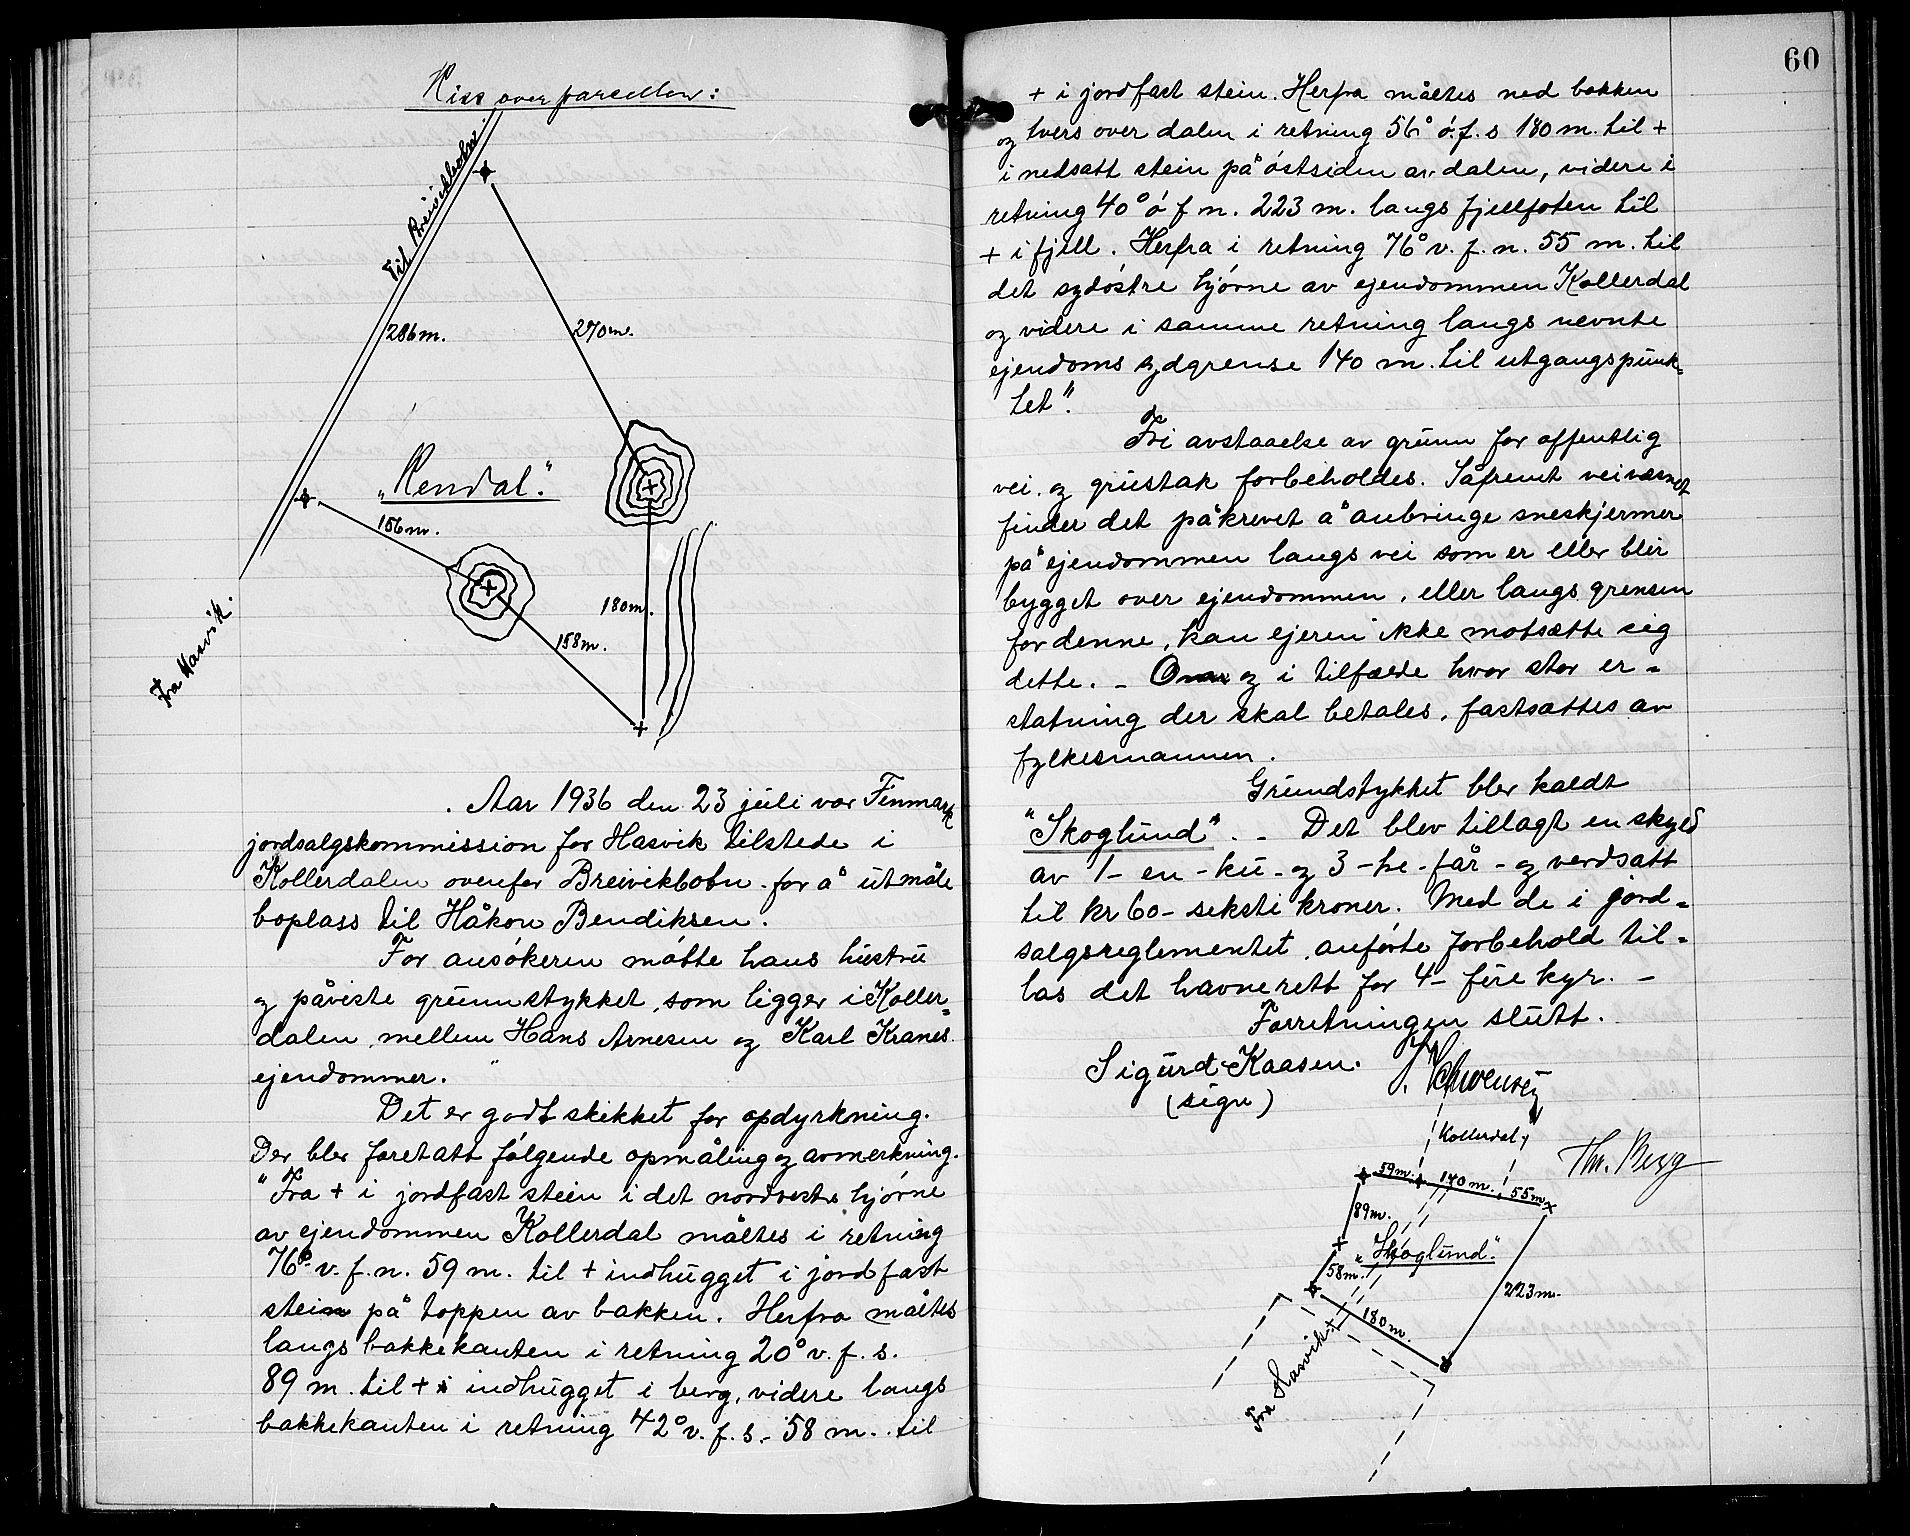 Riss over parsellen:
Til Breivikbotn
286m.
270m.
"Rendal."
156m.
180m.
158m.
Fra Hasvik.
Aar 1936 den 23 juli var Finmark
jordsalgskommission for Hasvik tilstede i
Kollerdalen ovenfor Breivikbotn for å utmåle
boplass til Håkon Bendiksen.
For ansökeren mötte hans hustru
og påviste grunnstykket, som ligger i Koller=
dalen, mellem Hans Arnesen og Karl Kranes
ejendommer.
Det er godt skikket for opdyrkning.
Der blev foretatt fölgende opmåling og avmerkning.
"Fra + i jordfast stein i det nordvestre hjörne
av ejendommen Kollerdal måltes i retning
76° v. f. n. 59 m. til + indhugget i jordfast
stein på toppen av bakken. Herfra måltes
langs bakkekanten i retning 20° v. f. s.
89 m. til + i indhugget i berg, videre langs
bakkekanten i retning 42° v. f. s. 58 m. til
60
+ i jordfast stein. Herfra måltes ned bakken
og tvers over dalen i retning 56° ö. f. s 180 m. til +
i nedsatt stein på östsiden av dalen, videre i
retning 40° ö f n. 223 m. langs fjellfoten til
+ i fjell. Herfra i retning 76° v. f. n. 55 m. til
det sydöstre hjörne av ejendommen Kollerdal
og videre i samme retning langs nevnte
ejendoms sydgrense 140 m. til utgangspunk=
tet".
Fri avstaaelse av grunn for offentlig
vei og grustak forbeholdes. Såfremt veivæsnet
finder det påkrevet å anbringe sneskjermer
på ejendommen langs vei som er eller blir
bygget over ejendommen, eller langs grensen
for denne, kan ejeren ikke motsætte sig
dette. - Om og i tilfælde hvor stor er=
statning der skal betales, fastsættes av
fylkesmannen.
Grundstykket blev kaldt
"Skoglund". - Det blev tillagt en skyld
av 1 - en - ku - og 3 - tre - får - og verdsatt
til kr 60 - seksti kroner. Med de i jord=
salgsreglementet anförte forbehold til=
las det havnerett for 4 - fire kyr. -
Forretningen slutt.
Sigurd Kaasen.
(sign)
Th. Berg
Kollerdal
59m.
140m.
55m.
89m.
"Skoglund".
58m.
223m.
180m.
Fra Hasvik